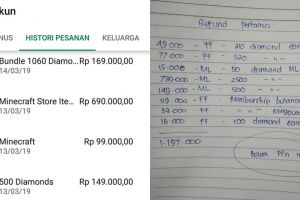 kun
NUS HISTORI PESANAN KELUARGA
Bundle 1060 Diamo... Rp 169.000,00
14/03/19
Minecraft Store Ite... Rp 690.000,00
13/03/19
Minecraft Rp 99.000,00
13/03/19
500 Diamonds Rp 149.000,00
13/03/19
Refund Pertama
49.000 - FF - 310 diamond
77.000 - FF - 520 "
15.000 - ML - 50 diamond ML
739.000 - ML - 2500 "
149.000 - ML - 500 "
119.000 - FF - Membership bulanan
39.000 - FF - Minggu
16.000 - FF - 100 diamond
1.197.000
Belum PPn